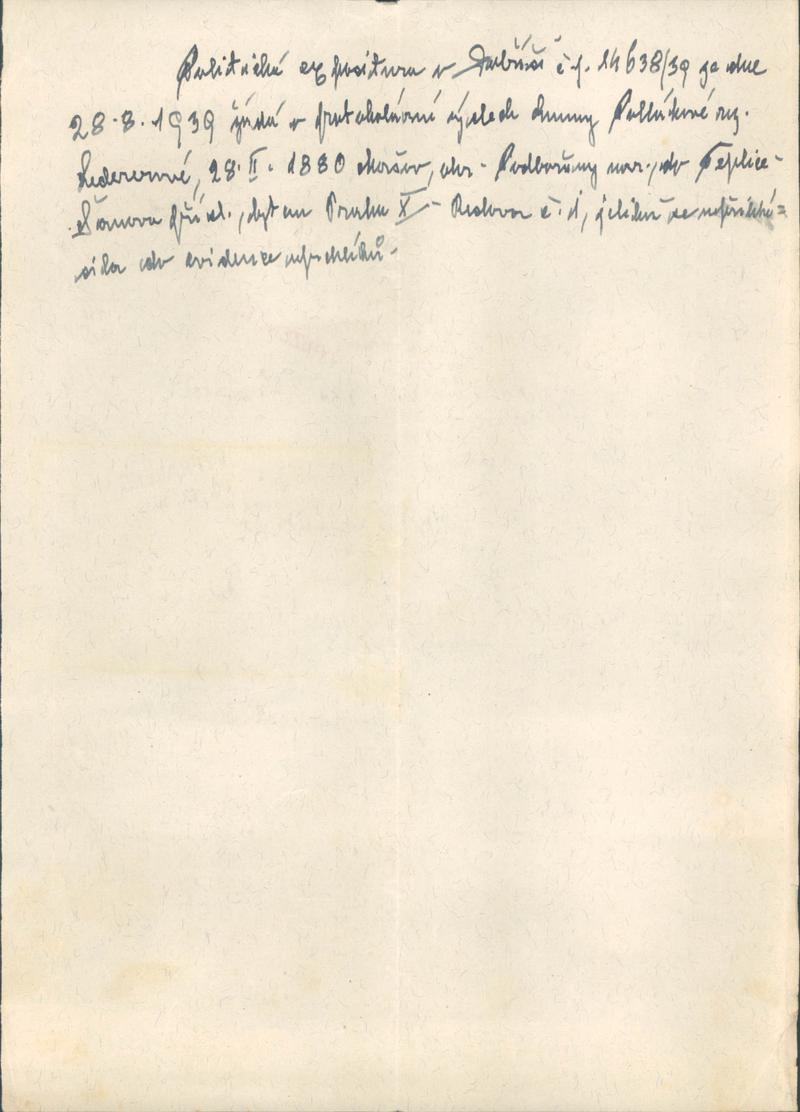 Politická expositura v č j. 14638/39 ze dne
28.8.1939 žádá o protokolární výslech Emmy Pollákové roz.
Ledererové, 28. II. 1880 okr. Podbořany nar., do Teplice-
Šanova přísl., bytem Praha X - č. 1, jelikož se nepřihlá=
sila do evidence uprchlíků.